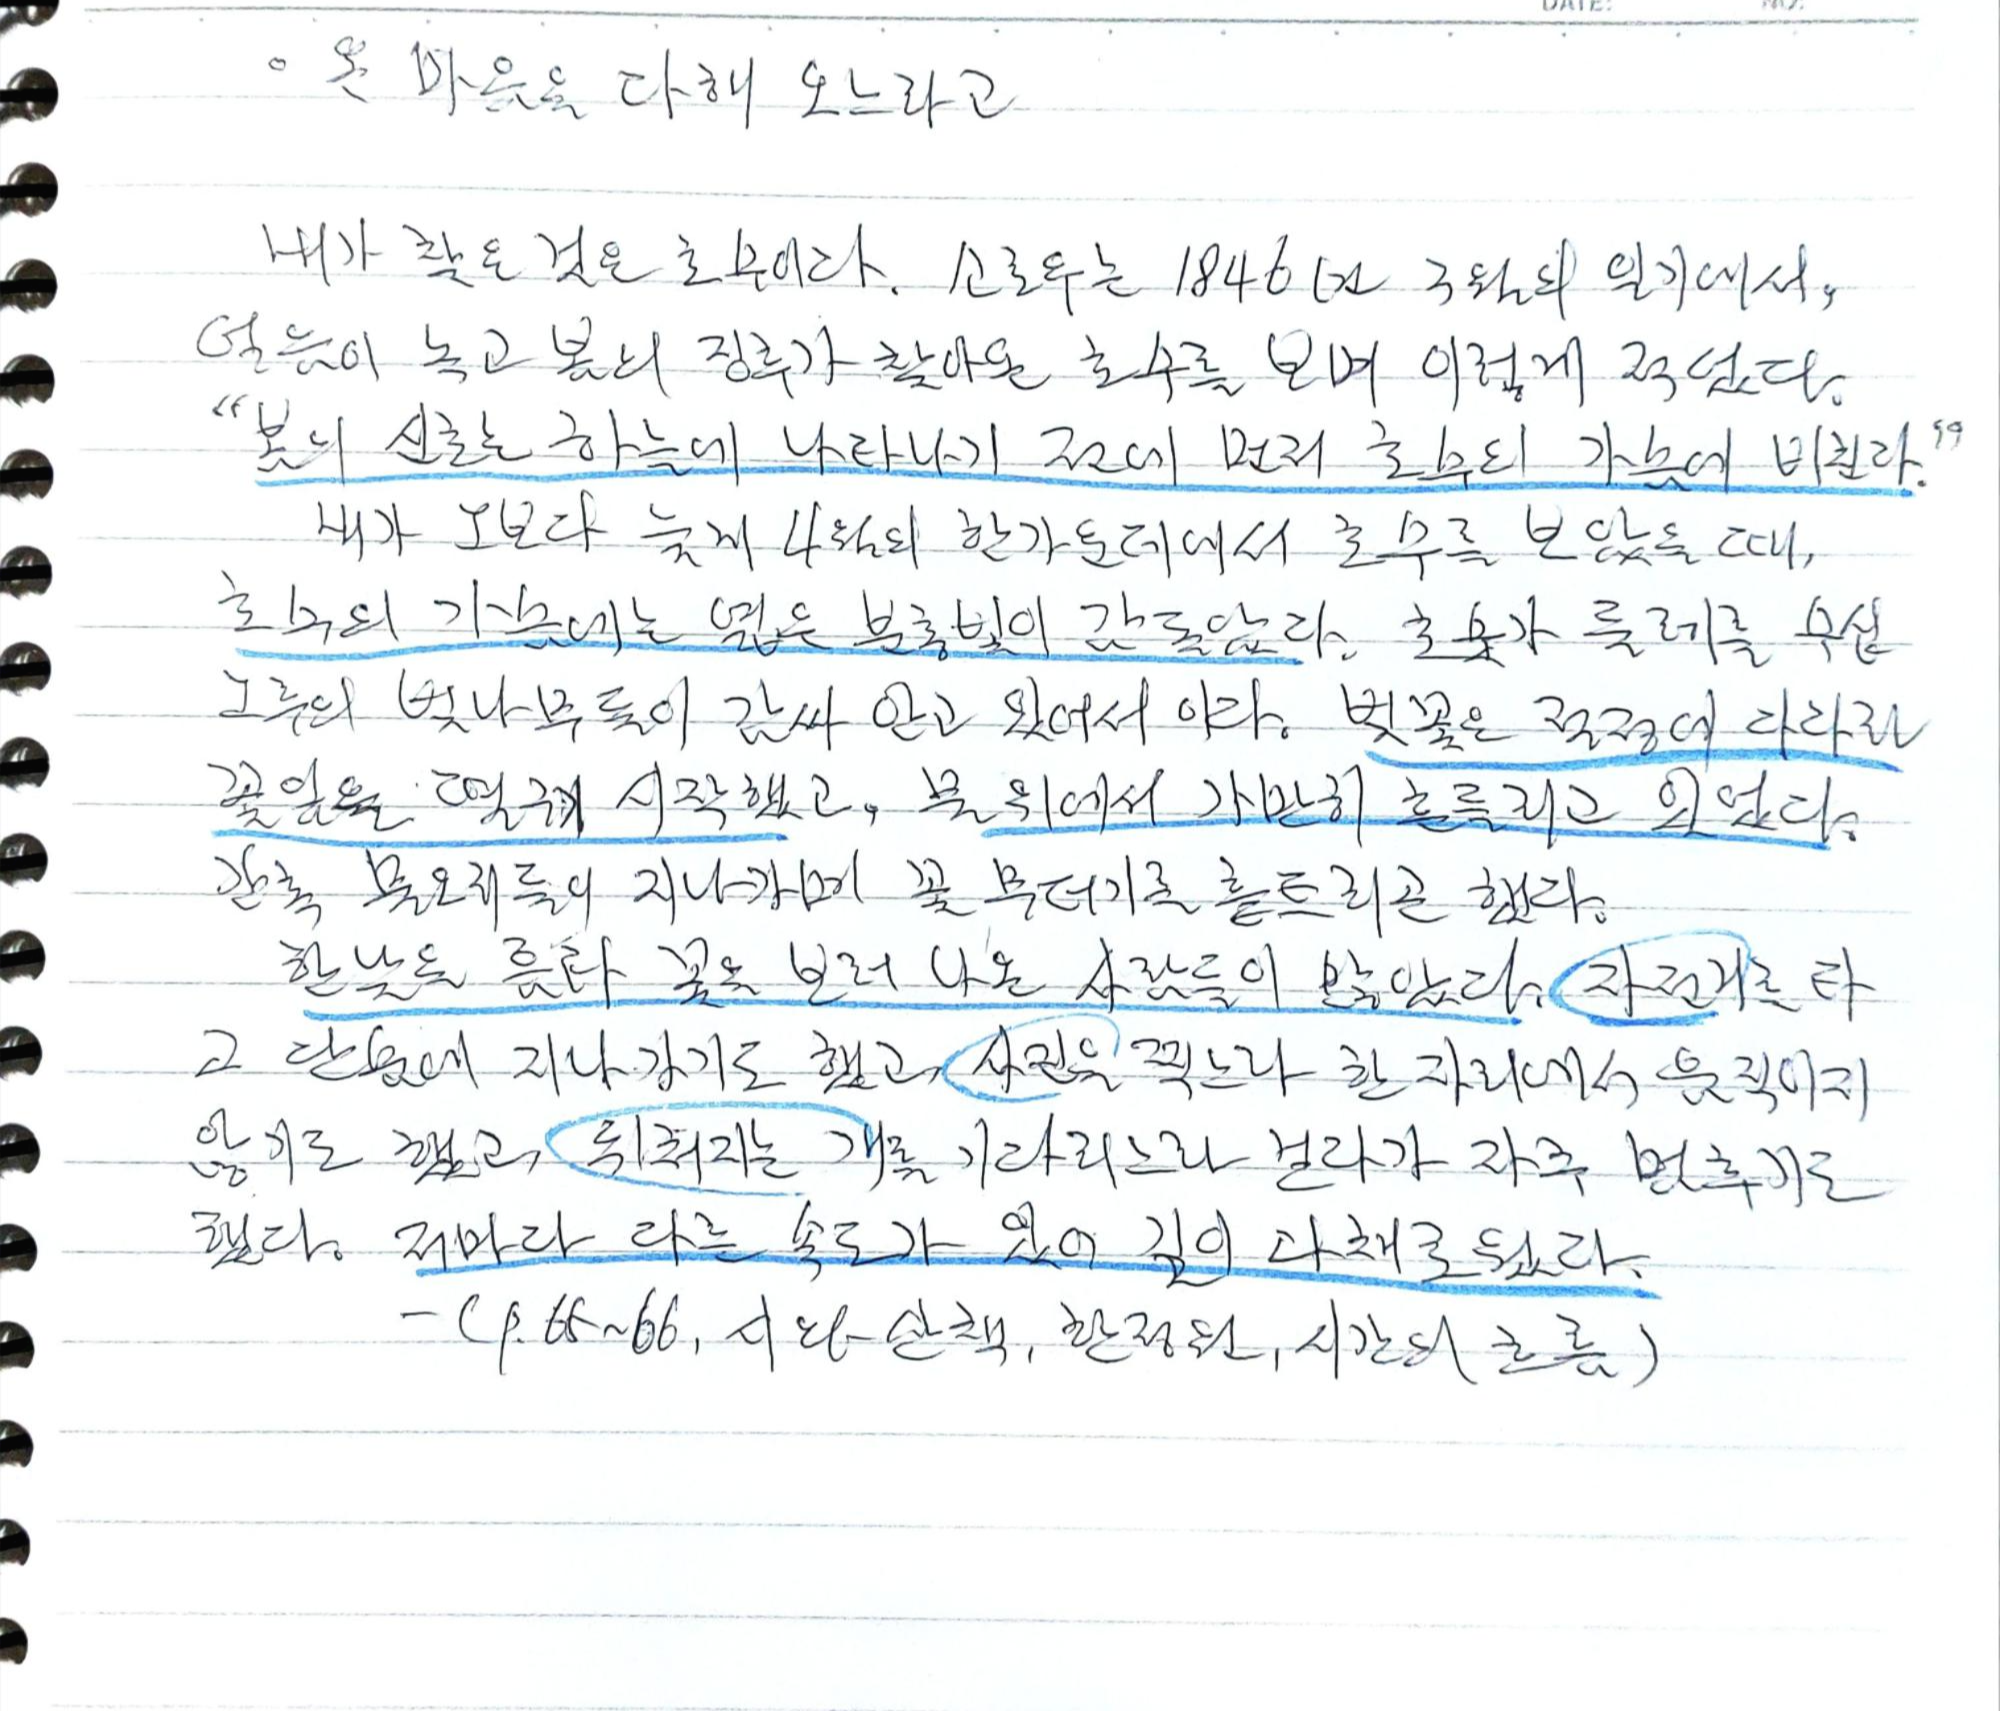 DATE: NO.
◦ 온 마음을 다해 오느라고
내가 찾은 것은 호수이다. 소로우는 1846년 3월의 일기에서,
얼음이 녹고 봄의 징후가 찾아온 호수를 보며 이렇게 적었다.
“봄의 신호는 하늘에 나타나기 전에 먼저 호수의 가슴에 비친다.”
내가 그보다 늦게 4월의 한가운데에서 호수를 보았을 때,
호수의 가슴에는 엷은 분홍빛이 감돌았다. 호숫가 둘레를 수십
그루의 벚나무들이 감싸 안고 있어서 이다. 벚꽃은 절정에 다다라
꽃잎을 떨궈 시작했고, 물 위에서 가만히 흔들리고 있었다.
간혹 물오리들이 지나가며 꽃 무더기를 흩트리곤 했다.
한낮을 틈타 꽃을 보러 나온 사람들이 많았다. 자전거를 타
고 단숨에 지나가기도 했고, 사진을 찍느라 한 자리에서 움직이지
않기도 했고, 뒤처지는 개를 기다리느라 걷다가 자주 멈추기도
했다. 저마다 다른 속도가 있어 길이 다채로웠다.
-(p.65~66, 시와 산책, 한정원, 시간의 흐름)